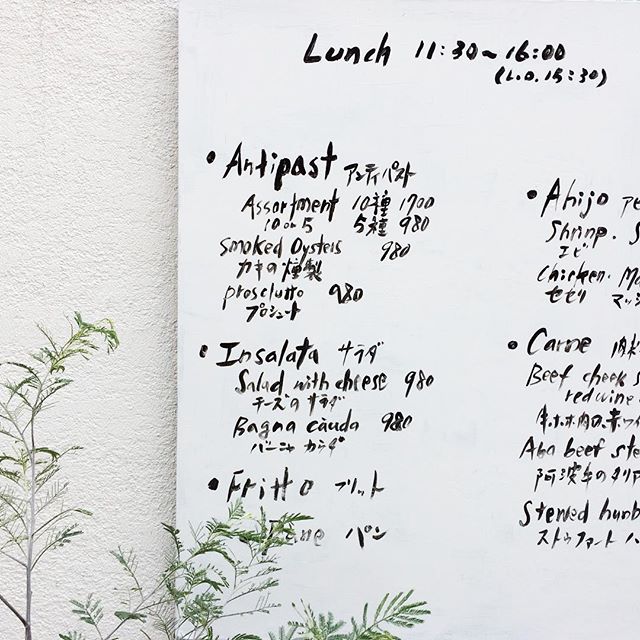 Lunch 11:30~16:00
(L.O.15:30)
• Antipast アンティパスト
Assortment 10種 1700
10 or 5 5種 980
smoked Oysters 980
カキの燻製
prosciutto 980
プロシュート
• Insalata サラダ
Salad with cheese 980
チーズのサラダ
Bagna càuda 980
バーニャカウダ
• Fritto フリット
Pane パン
• Ahijo アヒ
Shrimp. S
エビ
chicken. Ma
セセリ マッシ
• Carne 肉料
Beef cheek s
red wine
牛ホホ肉の赤ワイ
Aba beef ste
阿波牛のタリア
Stewed humb
ストゥファート ハ